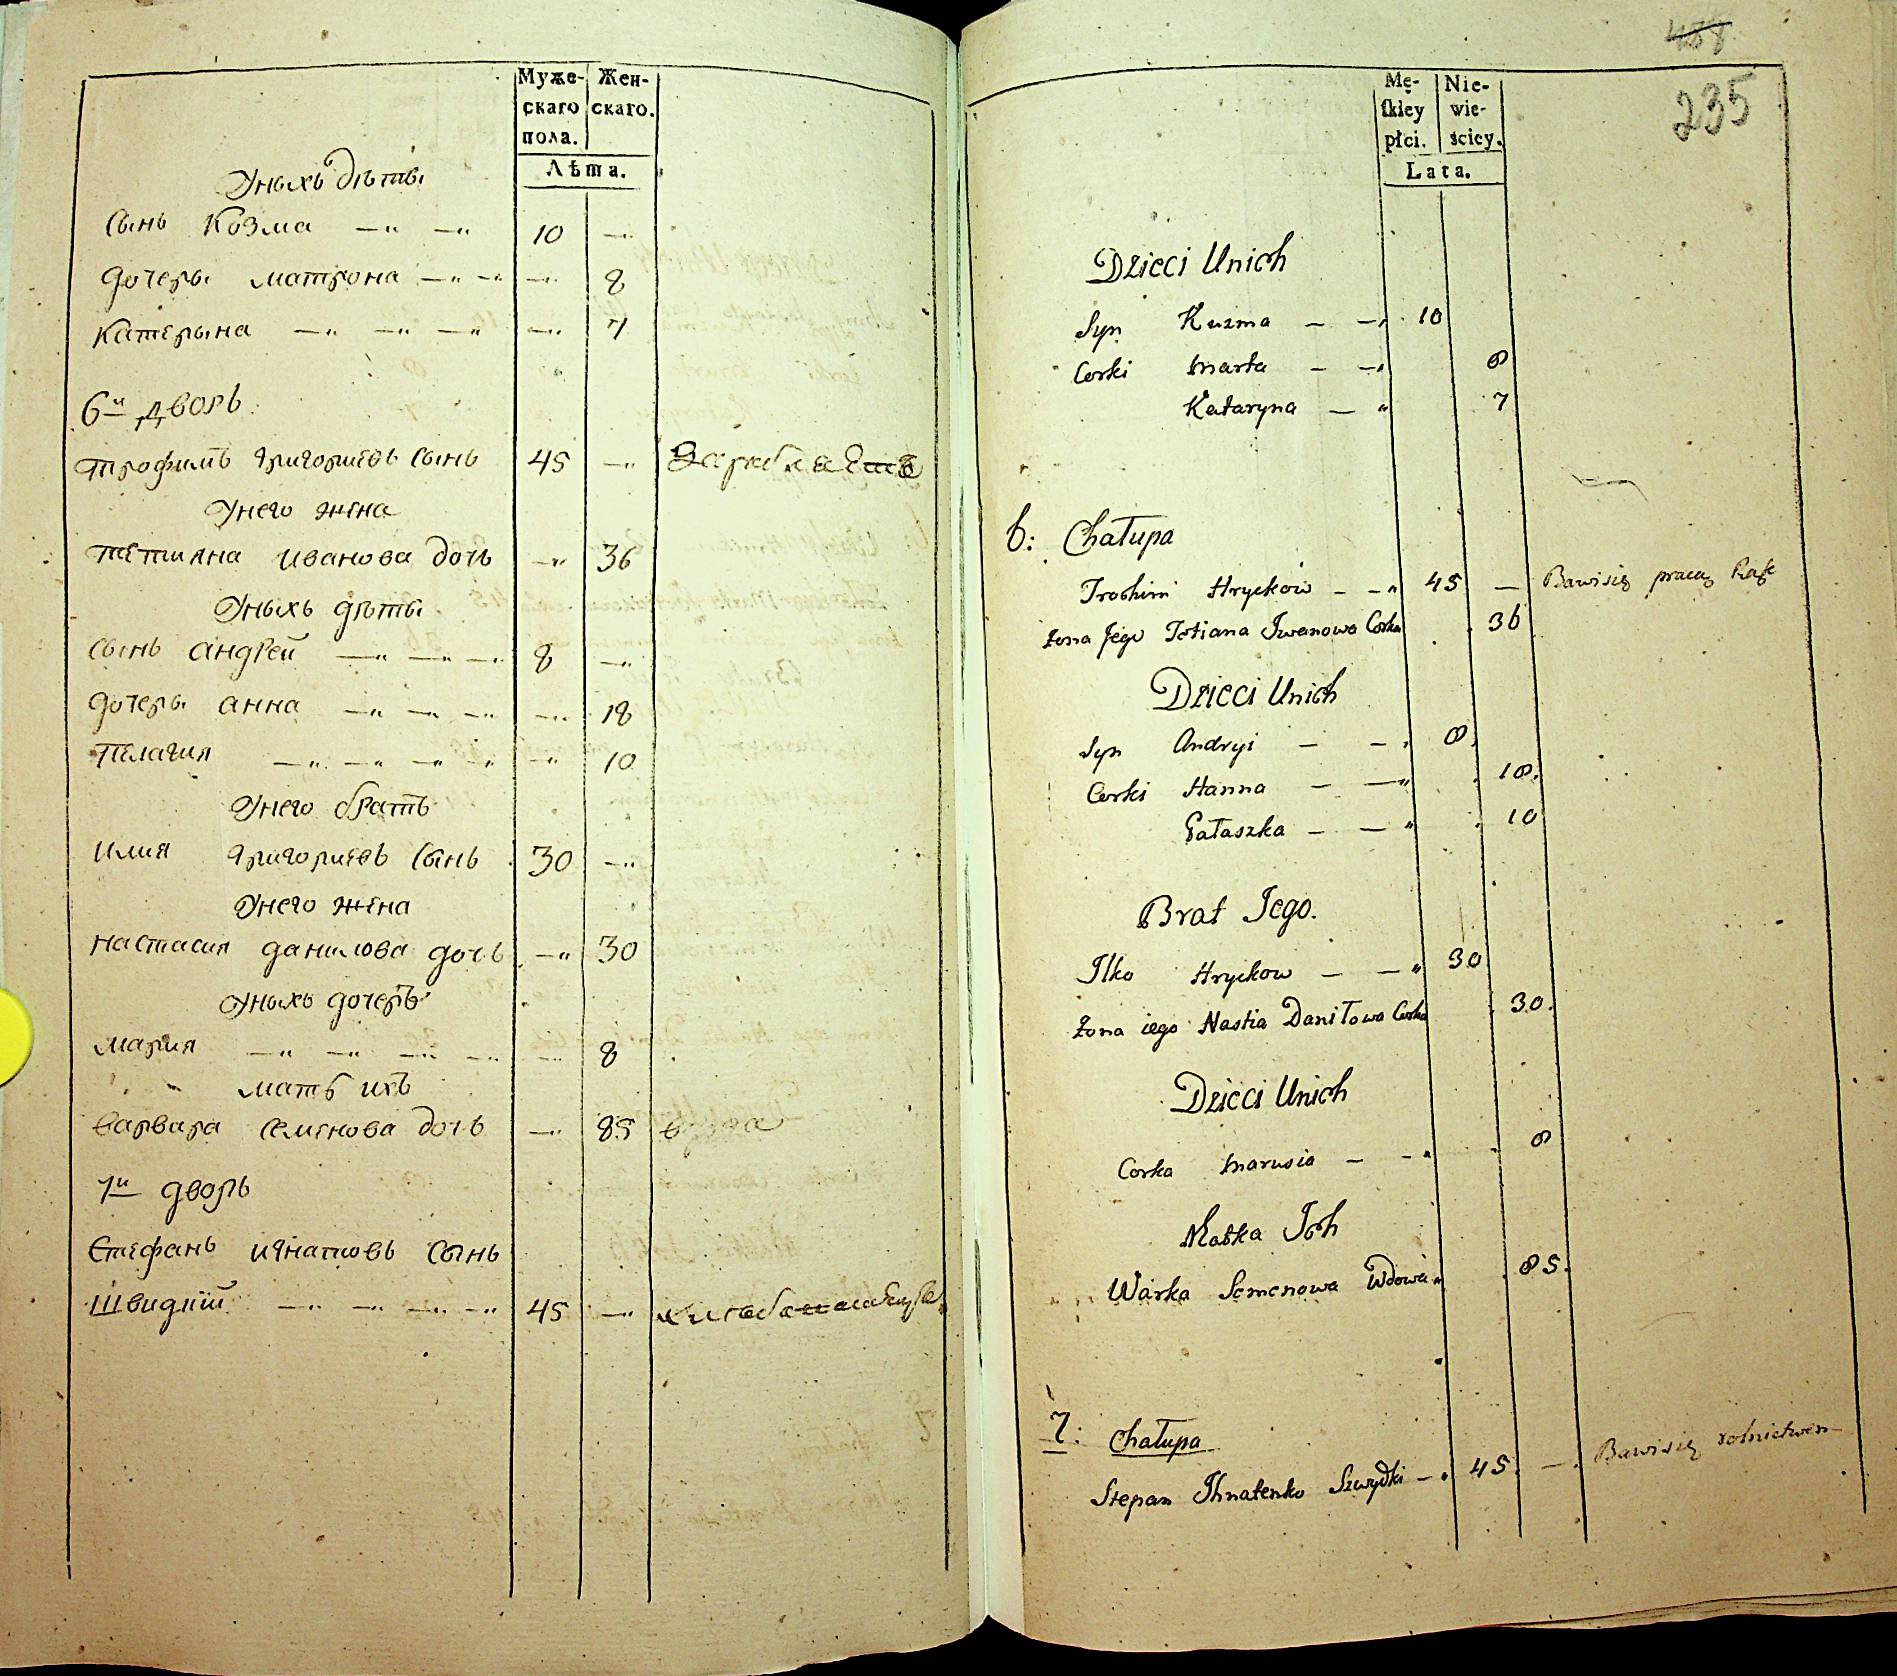 Муже-
скаго
пола.
Жен-
скаго.
Лѣта.
Уныхъ дѣти
Сынъ Козма — „ — „ 10 — „
дочеры матрона — „ — „ — „ 8
Катерына — „ — „ — „ — „ 7
6й дворъ
трофимъ григориевъ сынъ 45 — „
Унего жена
тетиана иванова дочь — „ 36
Уныхъ дѣти
Сынъ андрей — „ — „ — „ 8 — „
дочеры анна — „ — „ — „ — „ 18
пелагия — „ — „ — „ „ — „ 10
Унего братъ
илия григориевъ сынъ 30 — „
Унего жена
настасия данилова дочь — „ 30
Уныхъ дочеръ
мария — „ — „ — „ — „ — „ 8
мать ихъ
варвара семенова дочь — „ 85 вдова
7й дворъ
Стефанъ игнатовъ сынъ
Швидкий — „ — „ — „ — „ 45 — „
488
235
Mę-
skiey
płci.
Nie-
wie-
ściey.
Lata.
Dzieci Unich
Syn Kuzma — — „ 10
Corki Marta — — „ 8
Kataryna — „ 7
6: Chałupa
Trochim Hryckow — — „ 45 — Bawisię pracą Rąk
Żona Jego Tetiana Iwanowa Corka 36
Dzieci Unich
Syn Andryi — — „ 8
Corki Hanna — — „ 18.
Pałaszka — — „ 10
Brat Jego.
Ilko Hryckow — — „ 30
Żona iego Nastia Daniłowa Corka 30.
Dzieci Unich
Corka Marusia — — „ 8
Matka Ich
Warka Semenowa Wdowa „ 85.
7: Chałupa
Stepan Ihnatenko Szwydki — „ 45. — . Bawisię rolnictwem